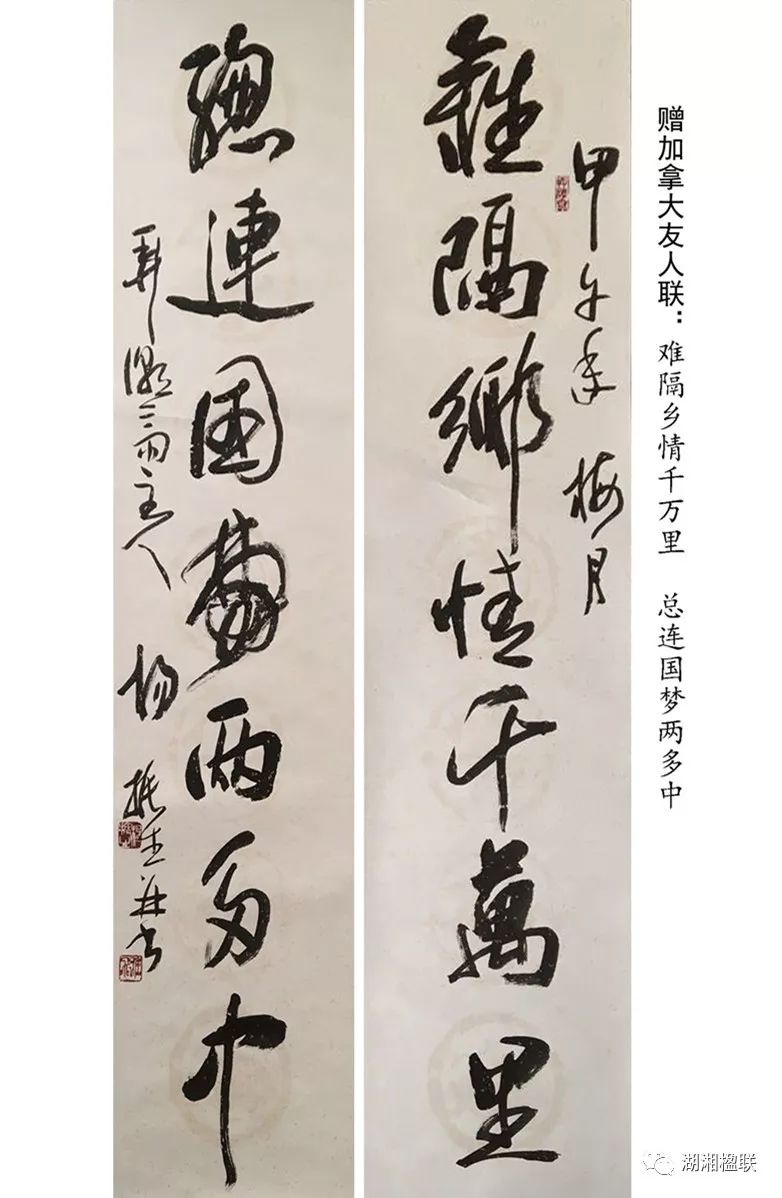 赠加拿大友人联：难隔乡情千万里 总连国梦两多中
甲午年 梅月
難隔鄉情千萬里
總連国夢两多中
主人 杨振生并书
湖湘楹联